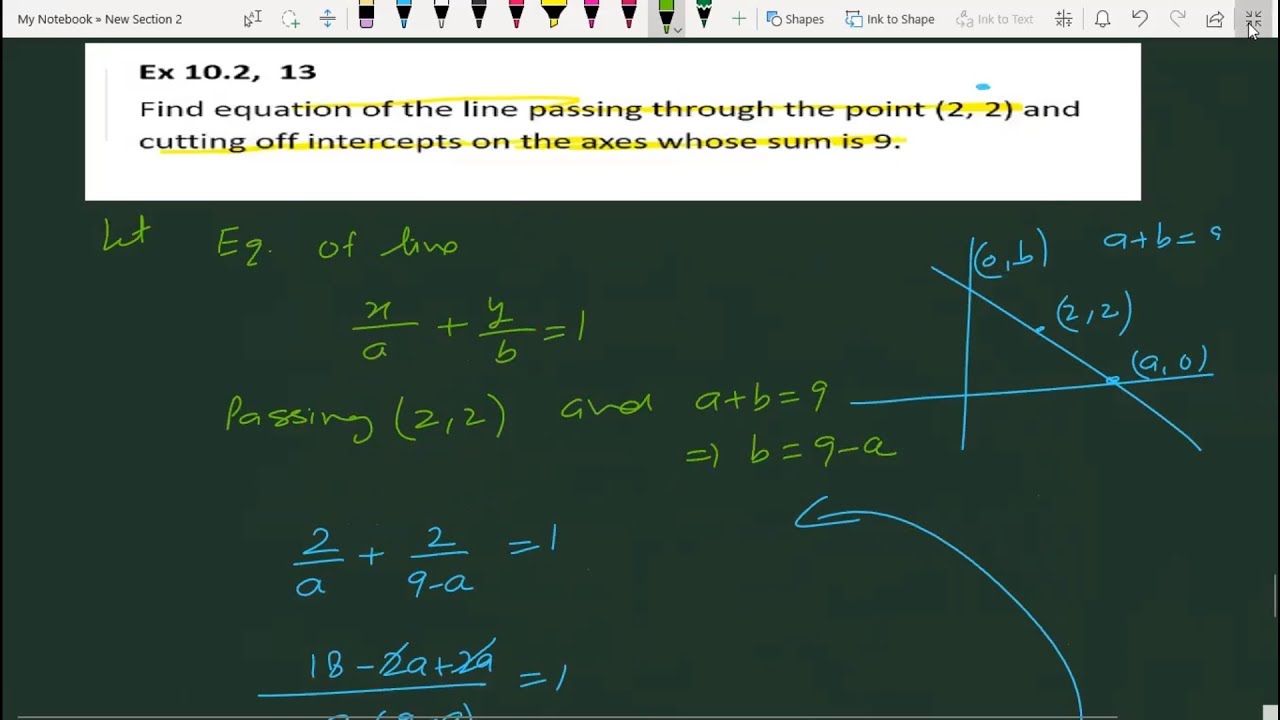 My Notebook » New Section 2
Shapes
Ink to Shape
Ink to Text
Ex 10.2, 13
Find equation of the line passing through the point (2, 2) and
cutting off intercepts on the axes whose sum is 9.
Let Eq. of line
x/a + y/b = 1
Passing (2,2) and a+b=9
=> b = 9-a
2/a + 2/(9-a) = 1
18-2a+2a
=1
a (9-a)
(0,b) a+b=9
(2,2)
(a,0)